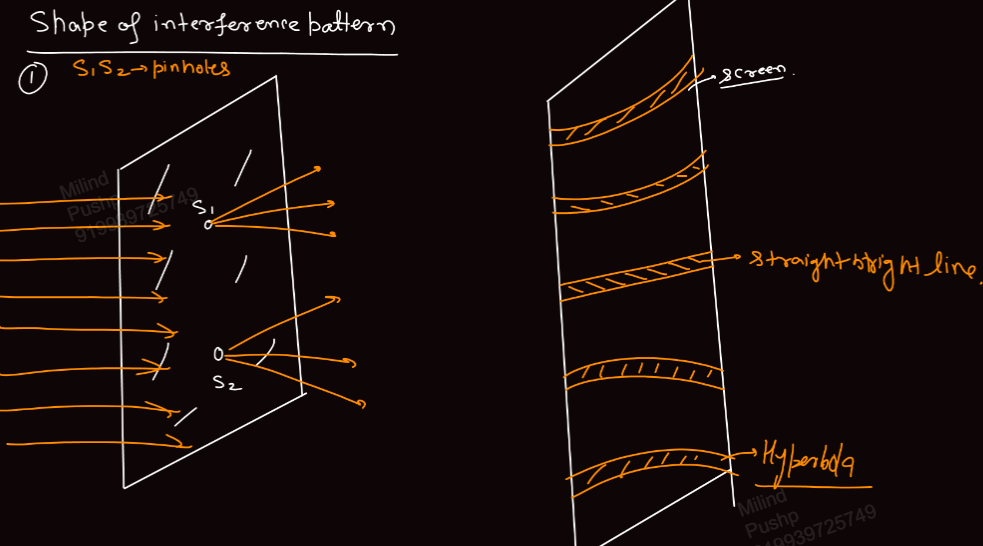 Shape of interference pattern
① S₁S₂→pinholes
screen.
Milind
Pushp
919939725749
S₁
straight bright line.
S₂
Hyperbola
Milind
Pushp
919939725749